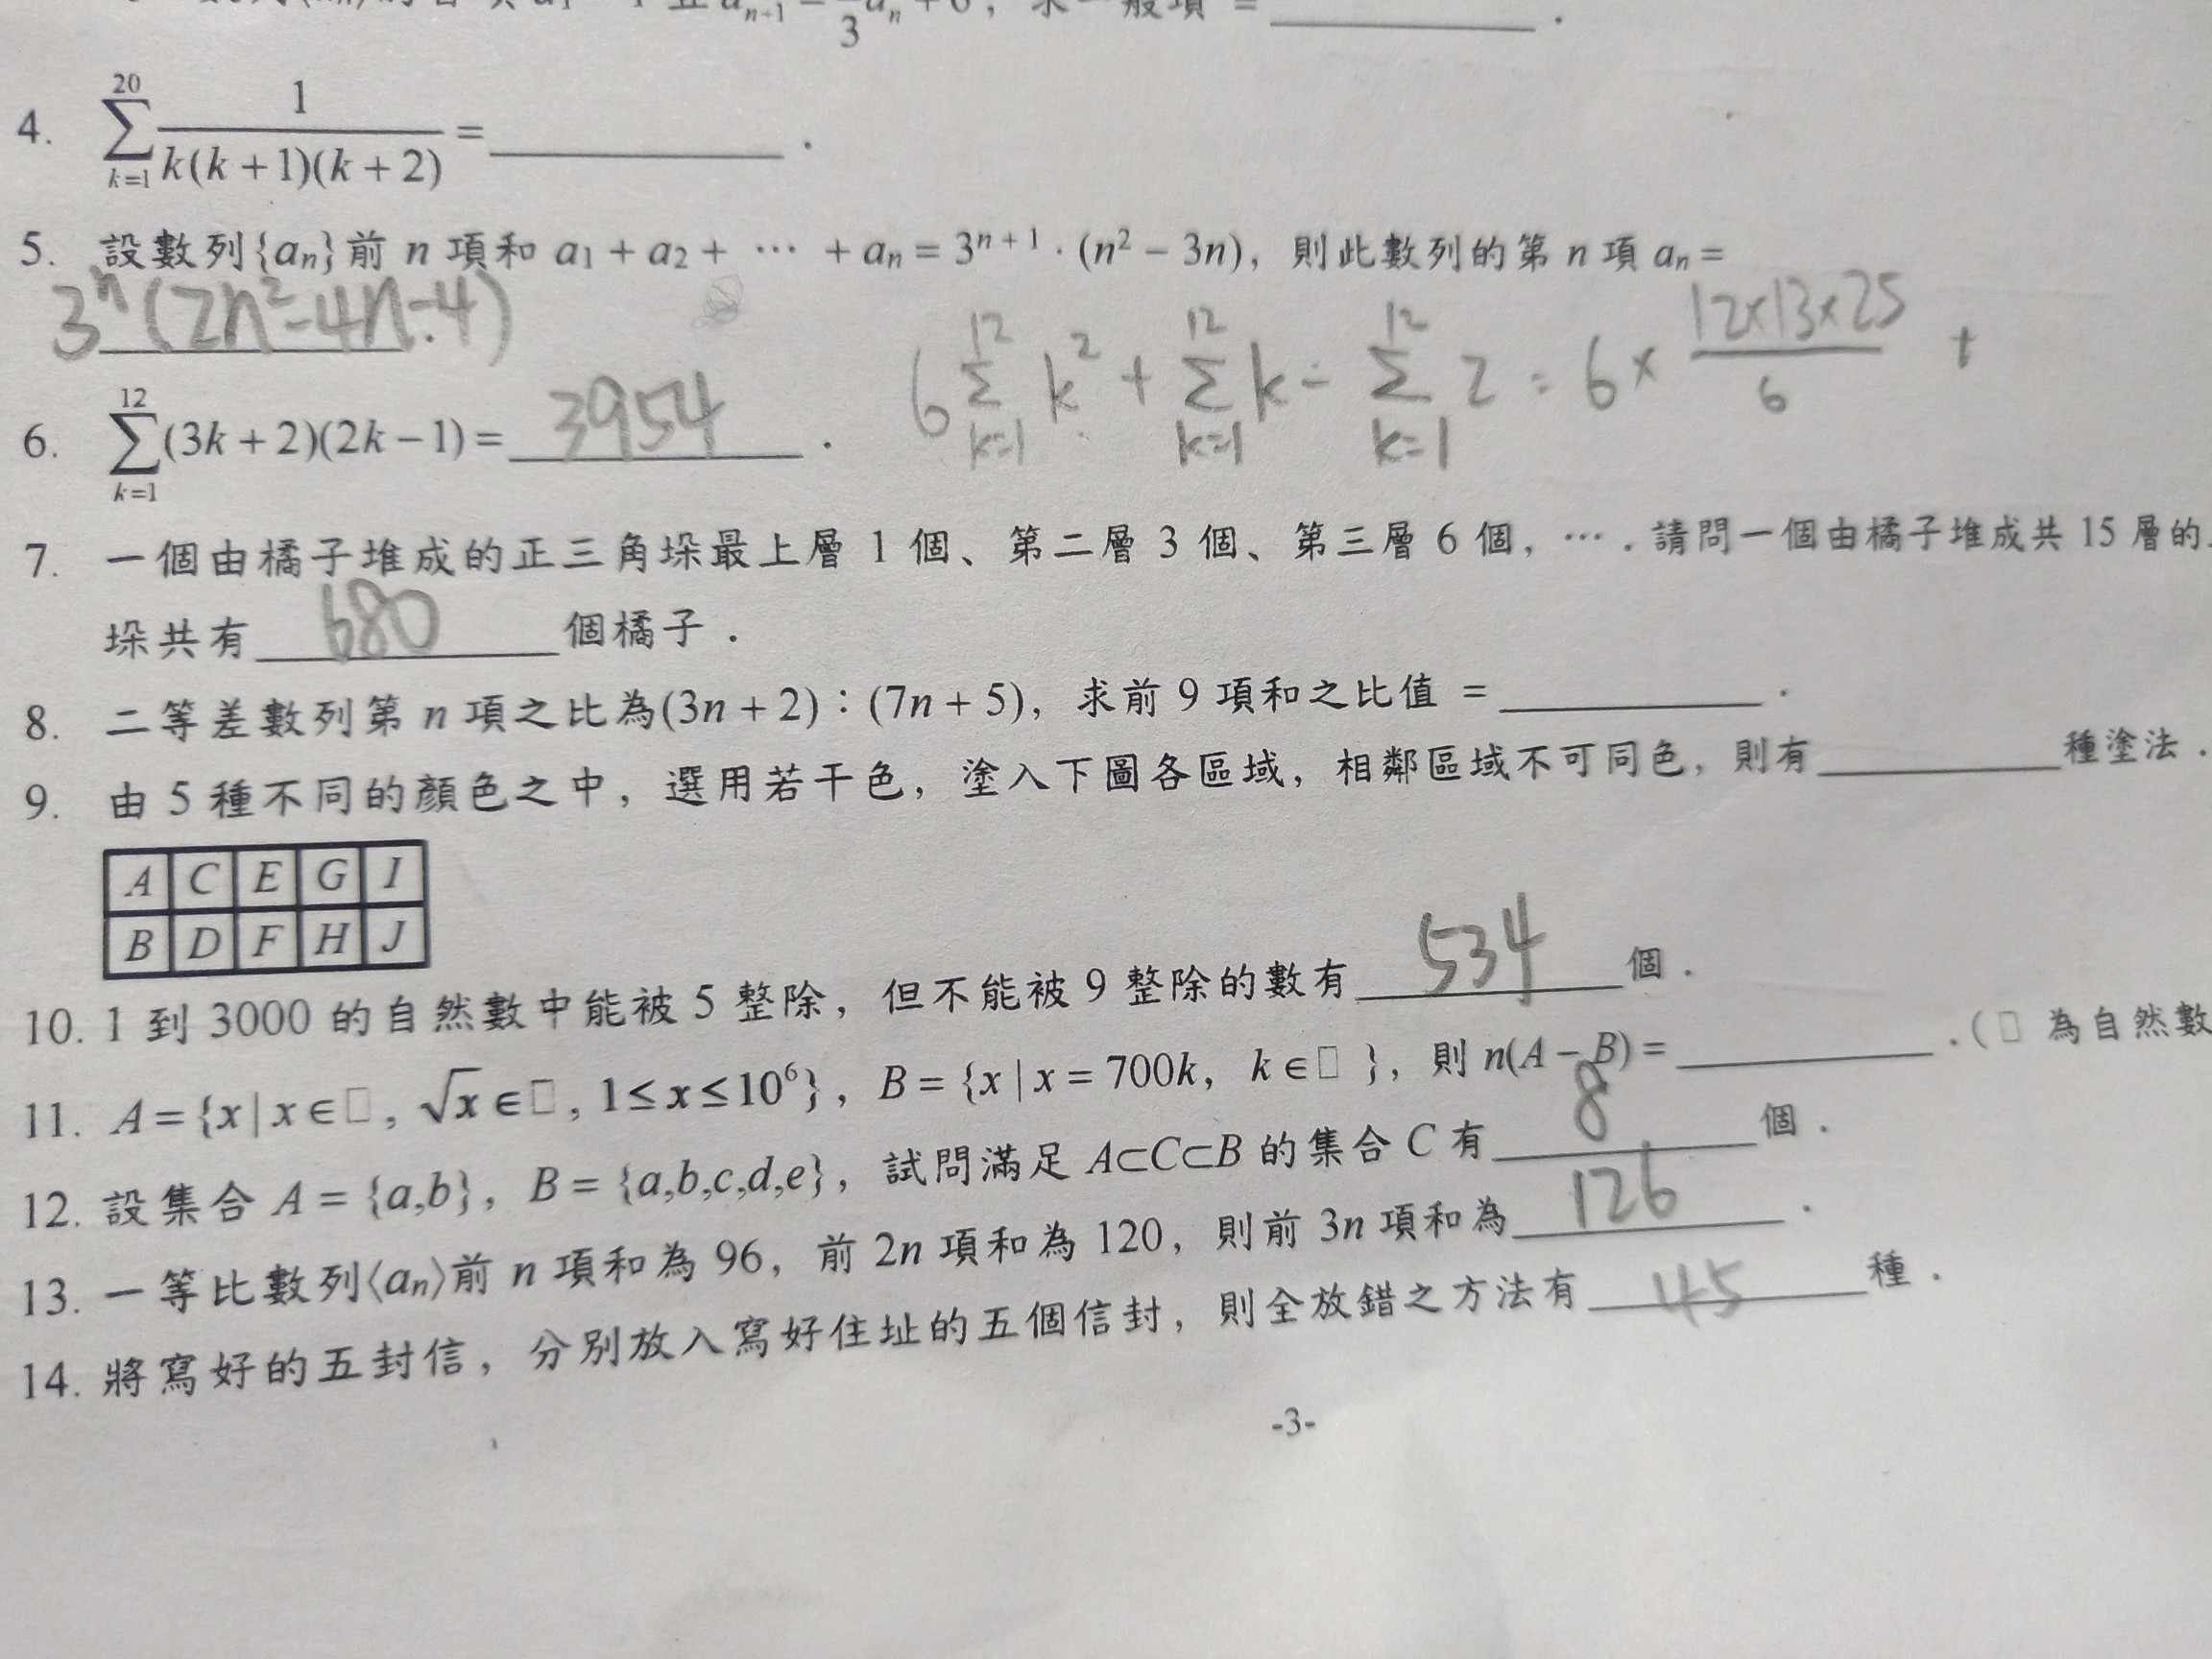 a_{n+1} = 3 a_n + 6, 求一般項 = ________ .
4. \sum_{k=1}^{20} \frac{1}{k(k+1)(k+2)} = ________ .
5. 設數列{a_n}前 n 項和 a_1 + a_2 + ⋯ + a_n = 3^{n+1} · (n^2 − 3n), 則此數列的第 n 項 a_n =
3^n (2n^2 - 4n - 4) .
6 \sum_{k=1}^{12} k^2 + \sum_{k=1}^{12} k - \sum_{k=1}^{12} 2 = 6 × \frac{12×13×25}{6} +
6. \sum_{k=1}^{12} (3k + 2)(2k − 1) = 3954 .
7. 一個由橘子堆成的正三角垛最上層 1 個、第二層 3 個、第三層 6 個, ⋯ . 請問一個由橘子堆成共 15 層的
垛共有 680 個橘子 .
8. 二等差數列第 n 項之比為(3n + 2)：(7n + 5), 求前 9 項和之比值 = ________ .
9. 由 5 種不同的顏色之中, 選用若干色, 塗入下圖各區域, 相鄰區域不可同色, 則有________種塗法 .
A C E G I
B D F H J
10. 1 到 3000 的自然數中能被 5 整除, 但不能被 9 整除的數有 534 個 .
11. A = {x | x ∈ □ , \sqrt{x} ∈ □ , 1 ≤ x ≤ 10^6} , B = {x | x = 700k, k ∈ □ }, 則 n(A − B) = ________ . (□ 為自然數
12. 設集合 A = {a,b}, B = {a,b,c,d,e}, 試問滿足 A⊂C⊂B 的集合 C 有 8 個 .
13. 一等比數列⟨a_n⟩前 n 項和為 96, 前 2n 項和為 120, 則前 3n 項和為 126 .
14. 將寫好的五封信, 分別放入寫好住址的五個信封, 則全放錯之方法有 45 種 .
-3-